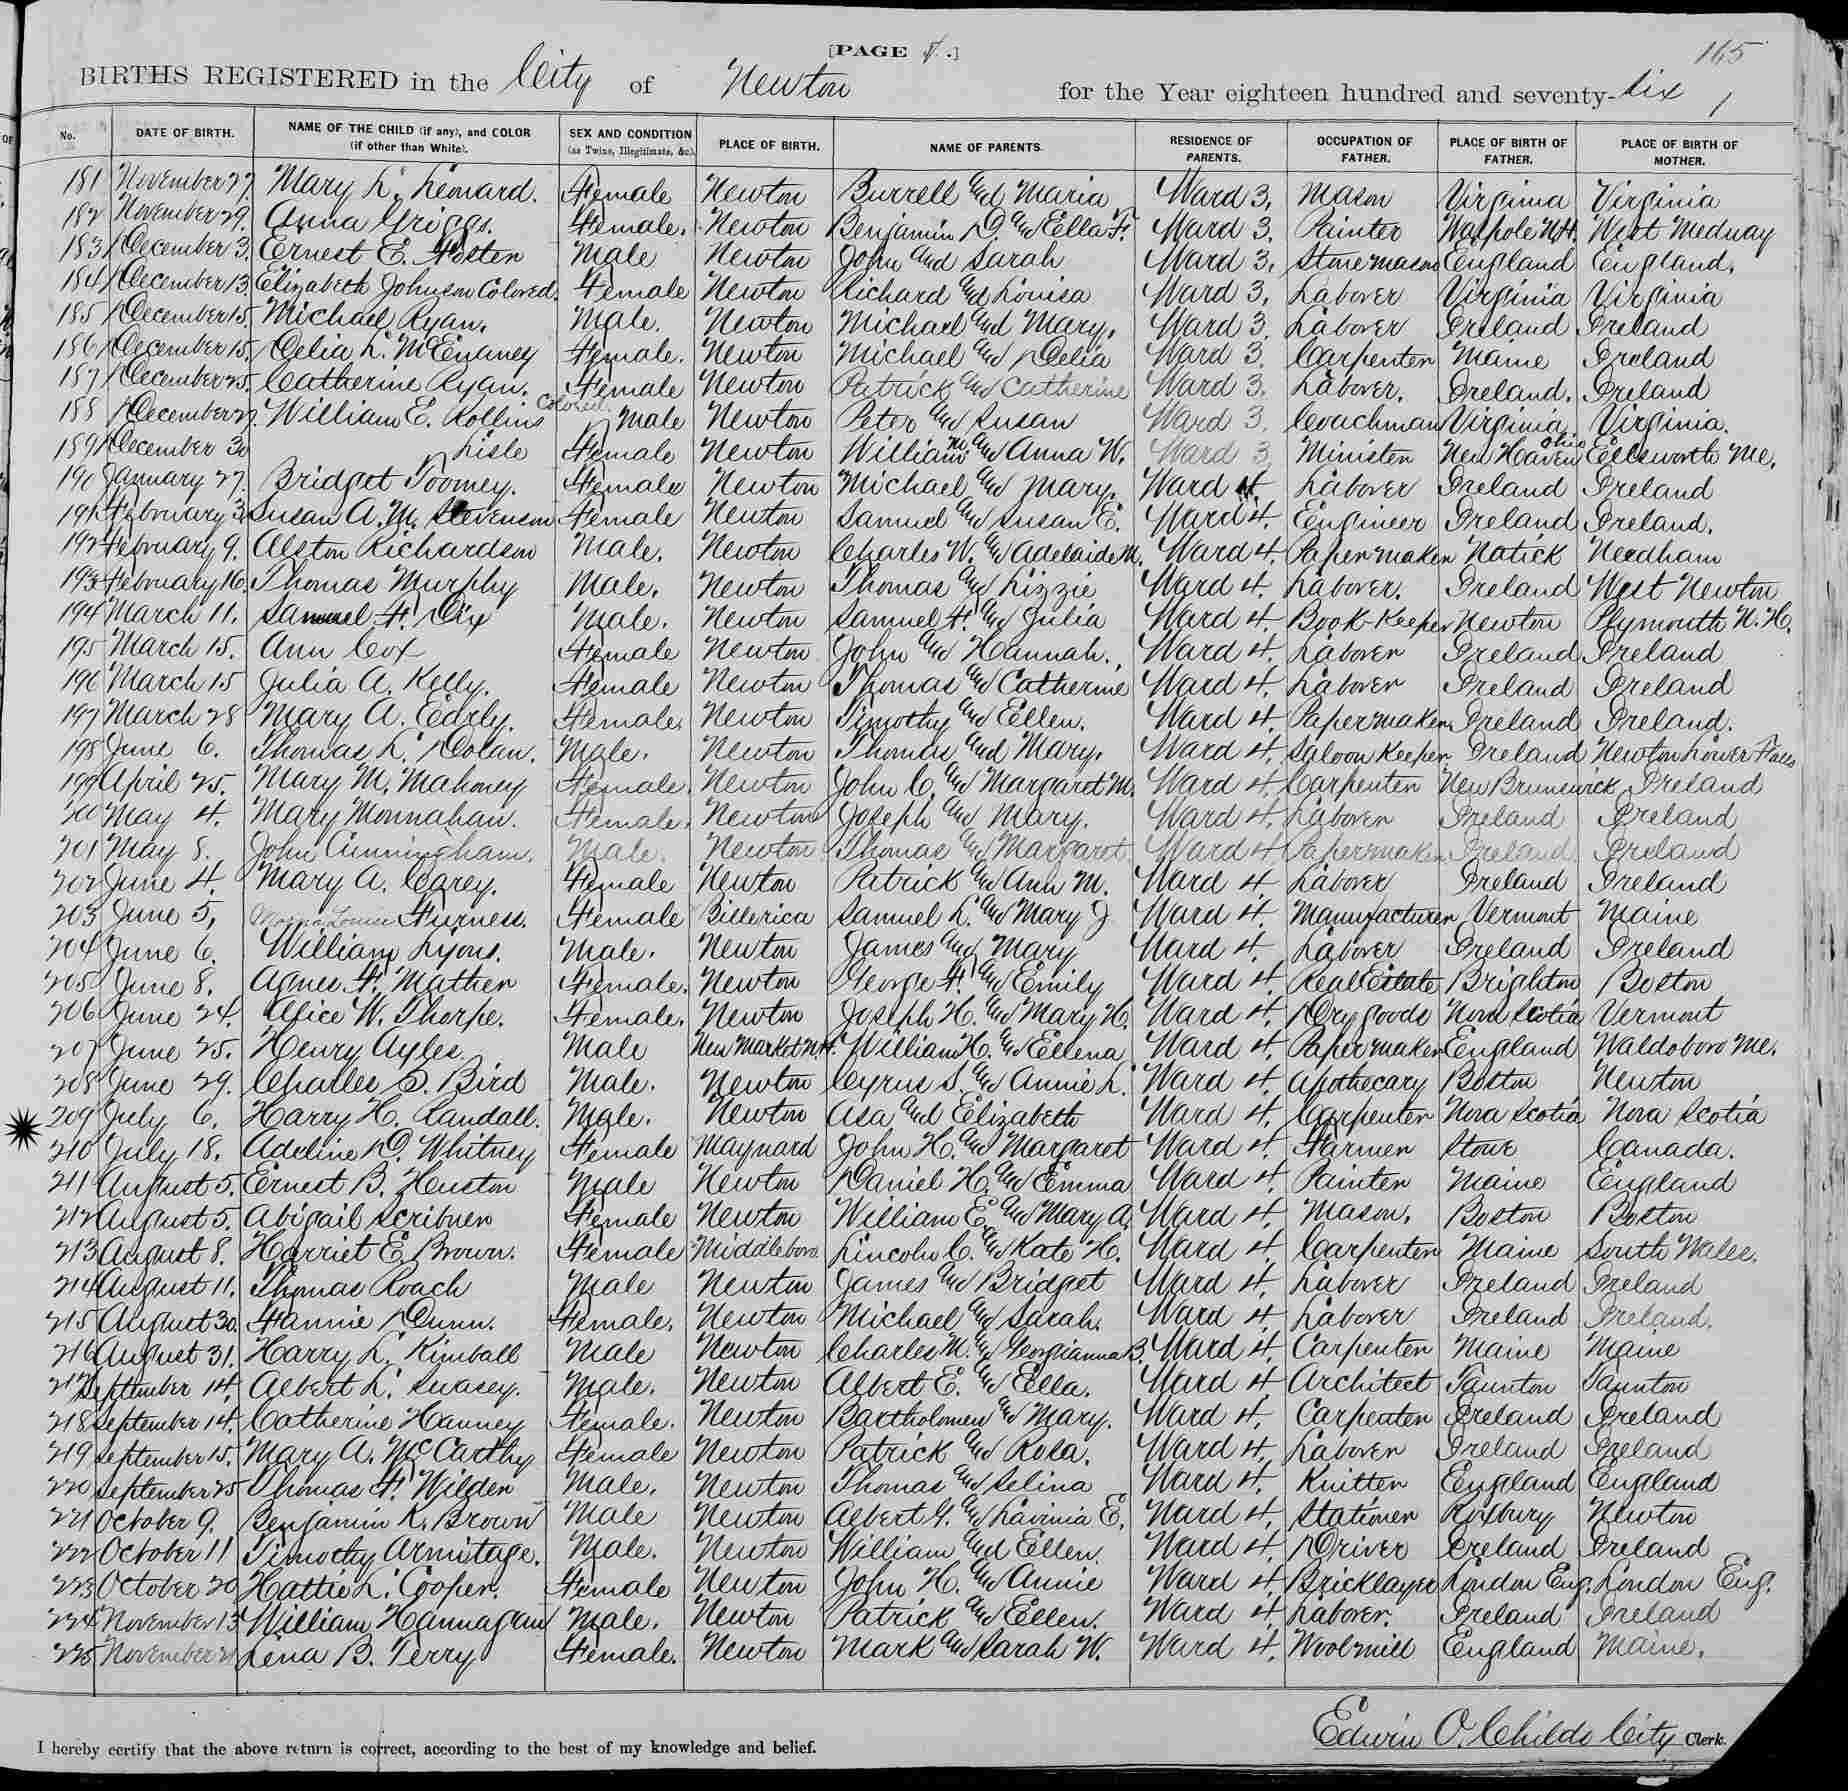 [PAGE .]
165
BIRTHS REGISTERED in the City of Newton for the Year eighteen hundred and seventy-six
No. DATE OF BIRTH. NAME OF THE CHILD (if any), and COLOR (if other than White). SEX AND CONDITION (as Twins, Illegitimate, &c.) PLACE OF BIRTH. NAME OF PARENTS. RESIDENCE OF PARENTS. OCCUPATION OF FATHER. PLACE OF BIRTH OF FATHER. PLACE OF BIRTH OF MOTHER.
181 November 27. Mary L. Leonard. Female Newton Burrell and Maria Ward 3, Mason Virginia Virginia
182 November 29. Anna Griggs. Female. Newton Benjamin D. and Ella F. Ward 3. Painter Walpole N.H. West Medway
183 December 3. Ernest E. Foster Male Newton John and Sarah Ward 3, Stone mason England England.
184 December 13. Elizabeth Johnson Colored. Female Newton Richard and Louisa Ward 3, Laborer Virginia Virginia
185 December 15. Michael Ryan. Male. Newton Michael and Mary. Ward 3. Laborer Ireland Ireland
186 December 15. Delia L. McEnaney Female. Newton Michael and Delia Ward 3. Carpenter Maine Ireland
187 December 25. Catherine Ryan. Female Newton Patrick and Catherine Ward 3. Laborer. Ireland. Ireland
188 December 27. William E. Rollins Colored. Male Newton Peter and Susan Ward 3. Coachman Virginia. Virginia.
189 December 30 Lisle Female Newton William and Anna W. Ward 3 Minister New Haven Ohio Ellsworth Me.
190 January 27. Bridget Toomey. Female Newton Michael and Mary. Ward 4. Laborer Ireland Ireland
191 February 3. Susan A. M. Stevenson Female Newton Samuel and Susan E. Ward 4. Engineer Ireland Ireland.
192 February 9. Alston Richardson Male. Newton Charles W. and Adelaide M. Ward 4. Paper maker Natick Needham
193 February 16. Thomas Murphy Male. Newton Thomas and Lizzie Ward 4. Laborer. Ireland West Newton
194 March 11. Samuel F. Dix Male. Newton Samuel F. and Julia Ward 4. Book-Keeper Newton Plymouth N.H.
195 March 15. Ann Cox Female Newton John and Hannah. Ward 4. Laborer Ireland Ireland
196 March 15 Julia A. Kelly. Female Newton Thomas and Catherine Ward 4. Laborer Ireland Ireland
197 March 28 Mary A. Early. Female. Newton Timothy and Ellen. Ward 4. Paper maker Ireland Ireland.
198 June 6. Thomas L. Dolan. Male. Newton Thomas and Mary. Ward 4. Saloon Keeper Ireland Newton Lower Falls
199 April 25. Mary M. Mahoney Female. Newton John C. and Margaret M. Ward 4. Carpenter New Brunswick Ireland
200 May 4. Mary Monnahan. Female. Newton Joseph and Mary. Ward 4. Laborer Ireland Ireland
201 May 8. John Cunningham. Male. Newton Thomas and Margaret Ward 4 Paper maker Ireland Ireland
202 June 4. Mary A. Carey. Female Newton Patrick and Ann M. Ward 4 Laborer Ireland Ireland
203 June 5, Louise Furness. Female Billerica Samuel L. and Mary J Ward 4. Manufacturer Vermont Maine
204 June 6. William Lyons. Male. Newton James and Mary Ward 4. Laborer Ireland Ireland
205 June 8. Agnes F. Mather Female. Newton George F. and Emily Ward 4. Real Estate Brighton Boston
206 June 24. Alice W. Thorpe. Female. Newton Joseph H. and Mary H. Ward 4. Dry goods Nova Scotia Vermont
207 June 25. Henry Ayles Male New Market N.H. William H. and Ellena Ward 4. Paper maker England Waldoboro Me.
208 June 29. Charles S. Bird Male. Newton Cyrus S. and Annie L. Ward 4. Apothecary Boston Newton
209 July 6. Harry H. Randall. Male. Newton Asa and Elizabeth Ward 4. Carpenter Nova Scotia Nova Scotia
210 July 18. Adeline D. Whitney Female Maynard John H. and Margaret Ward 4. Farmer Stowe Canada.
211 August 5. Ernest B. Huston Male Newton Daniel H. and Emma Ward 4. Painter Maine England
212 August 5. Abigail Scribner Female Newton William E. and Mary A. Ward 4. Mason. Boston Boston
213 August 8. Harriet E. Brown. Female Middleboro Lincoln C. and Kate H. Ward 4. Carpenter Maine South Wales.
214 August 11. Thomas Roach Male Newton James and Bridget Ward 4. Laborer Ireland Ireland
215 August 30. Fannie Dunn. Female. Newton Michael and Sarah. Ward 4. Laborer Ireland Ireland.
216 August 31. Harry L. Kimball Male Newton Charles M. and Georgianna B. Ward 4. Carpenter Maine Maine
217 September 14. Albert L. Swasey. Male. Newton Albert E. and Ella. Ward 4. Architect Taunton Taunton
218 September 14. Catherine Hanney Female. Newton Bartholomew and Mary. Ward 4. Carpenter Ireland Ireland
219 September 15. Mary A. McCarthy Female Newton Patrick and Rosa. Ward 4. Laborer Ireland Ireland
220 September 25 Thomas F. Wilder Male. Newton Thomas and Selina Ward 4. Knitter England England
221 October 9. Benjamin K. Brown Male Newton Albert G. and Lavinia E. Ward 4. Stationer Roxbury Newton
222 October 11 Timothy Armitage. Male. Newton William and Ellen. Ward 4. Driver Ireland Ireland
223 October 20 Hattie L. Cooper. Female Newton John H. and Annie Ward 4. Bricklayer London Eng. London Eng.
224 November 13 William Hannagan Male. Newton Patrick and Ellen. Ward 4. Laborer. Ireland Ireland
225 November 21 Lena B. Terry Female. Newton Mark and Sarah W. Ward 4. Wool mill England Maine.
I hereby certify that the above return is correct, according to the best of my knowledge and belief.
Edwin O. Childs City Clerk.